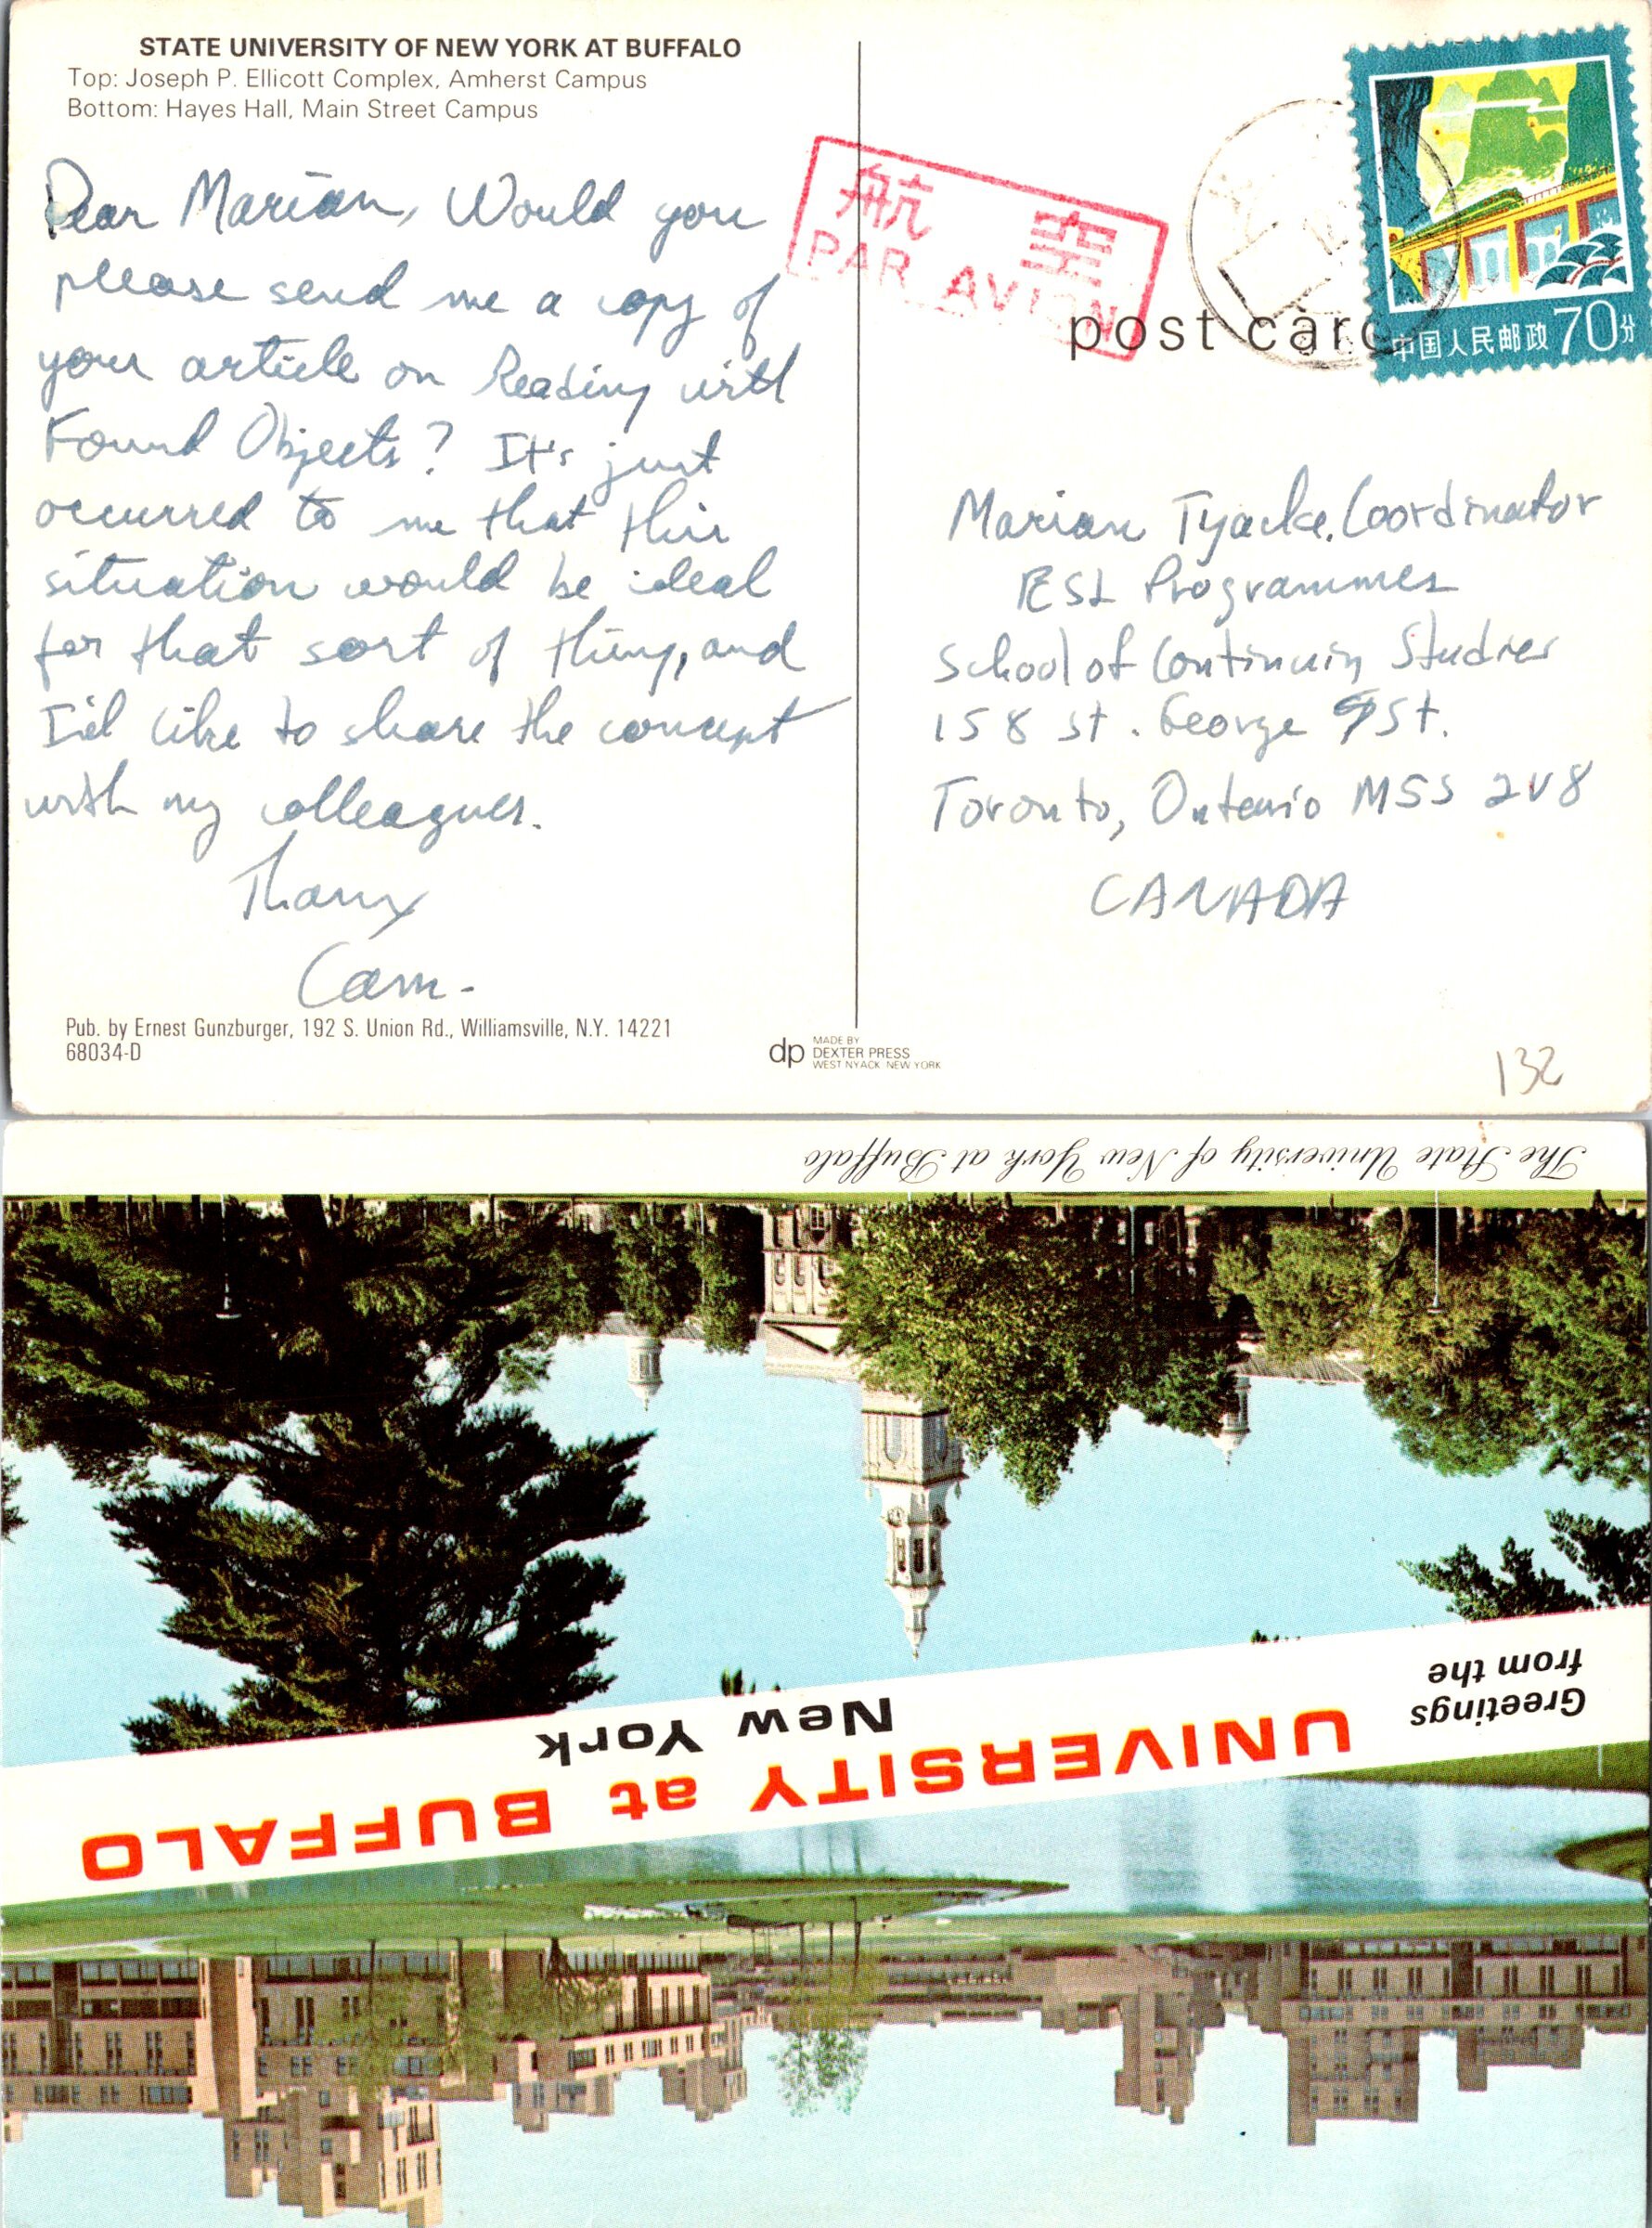 STATE UNIVERSITY OF NEW YORK AT BUFFALO
Top: Joseph P. Ellicott Complex, Amherst Campus
Bottom: Hayes Hall, Main Street Campus
Dear Marian, Would you
please send me a copy of
your article on Reading with
Found Objects? It's just
occurred to me that this
situation would be ideal
for that sort of thing, and
I'd like to share the concept
with my colleagues.
Thanx
Cam.
Pub. by Ernest Gunzburger, 192 S. Union Rd., Williamsville, N.Y. 14221
68034-D
dp
MADE BY
DEXTER PRESS
WEST NYACK NEW YORK
航 空
PAR AVION
post card
中国人民邮政 70分
Marian Tyacke, Coordinator
ESL Programmes
School of Continuing Studies
158 St. George St.
Toronto, Ontario M5S 2V8
CANADA
132
Greetings
from the
UNIVERSITY at BUFFALO
New York
The State University of New York at Buffalo